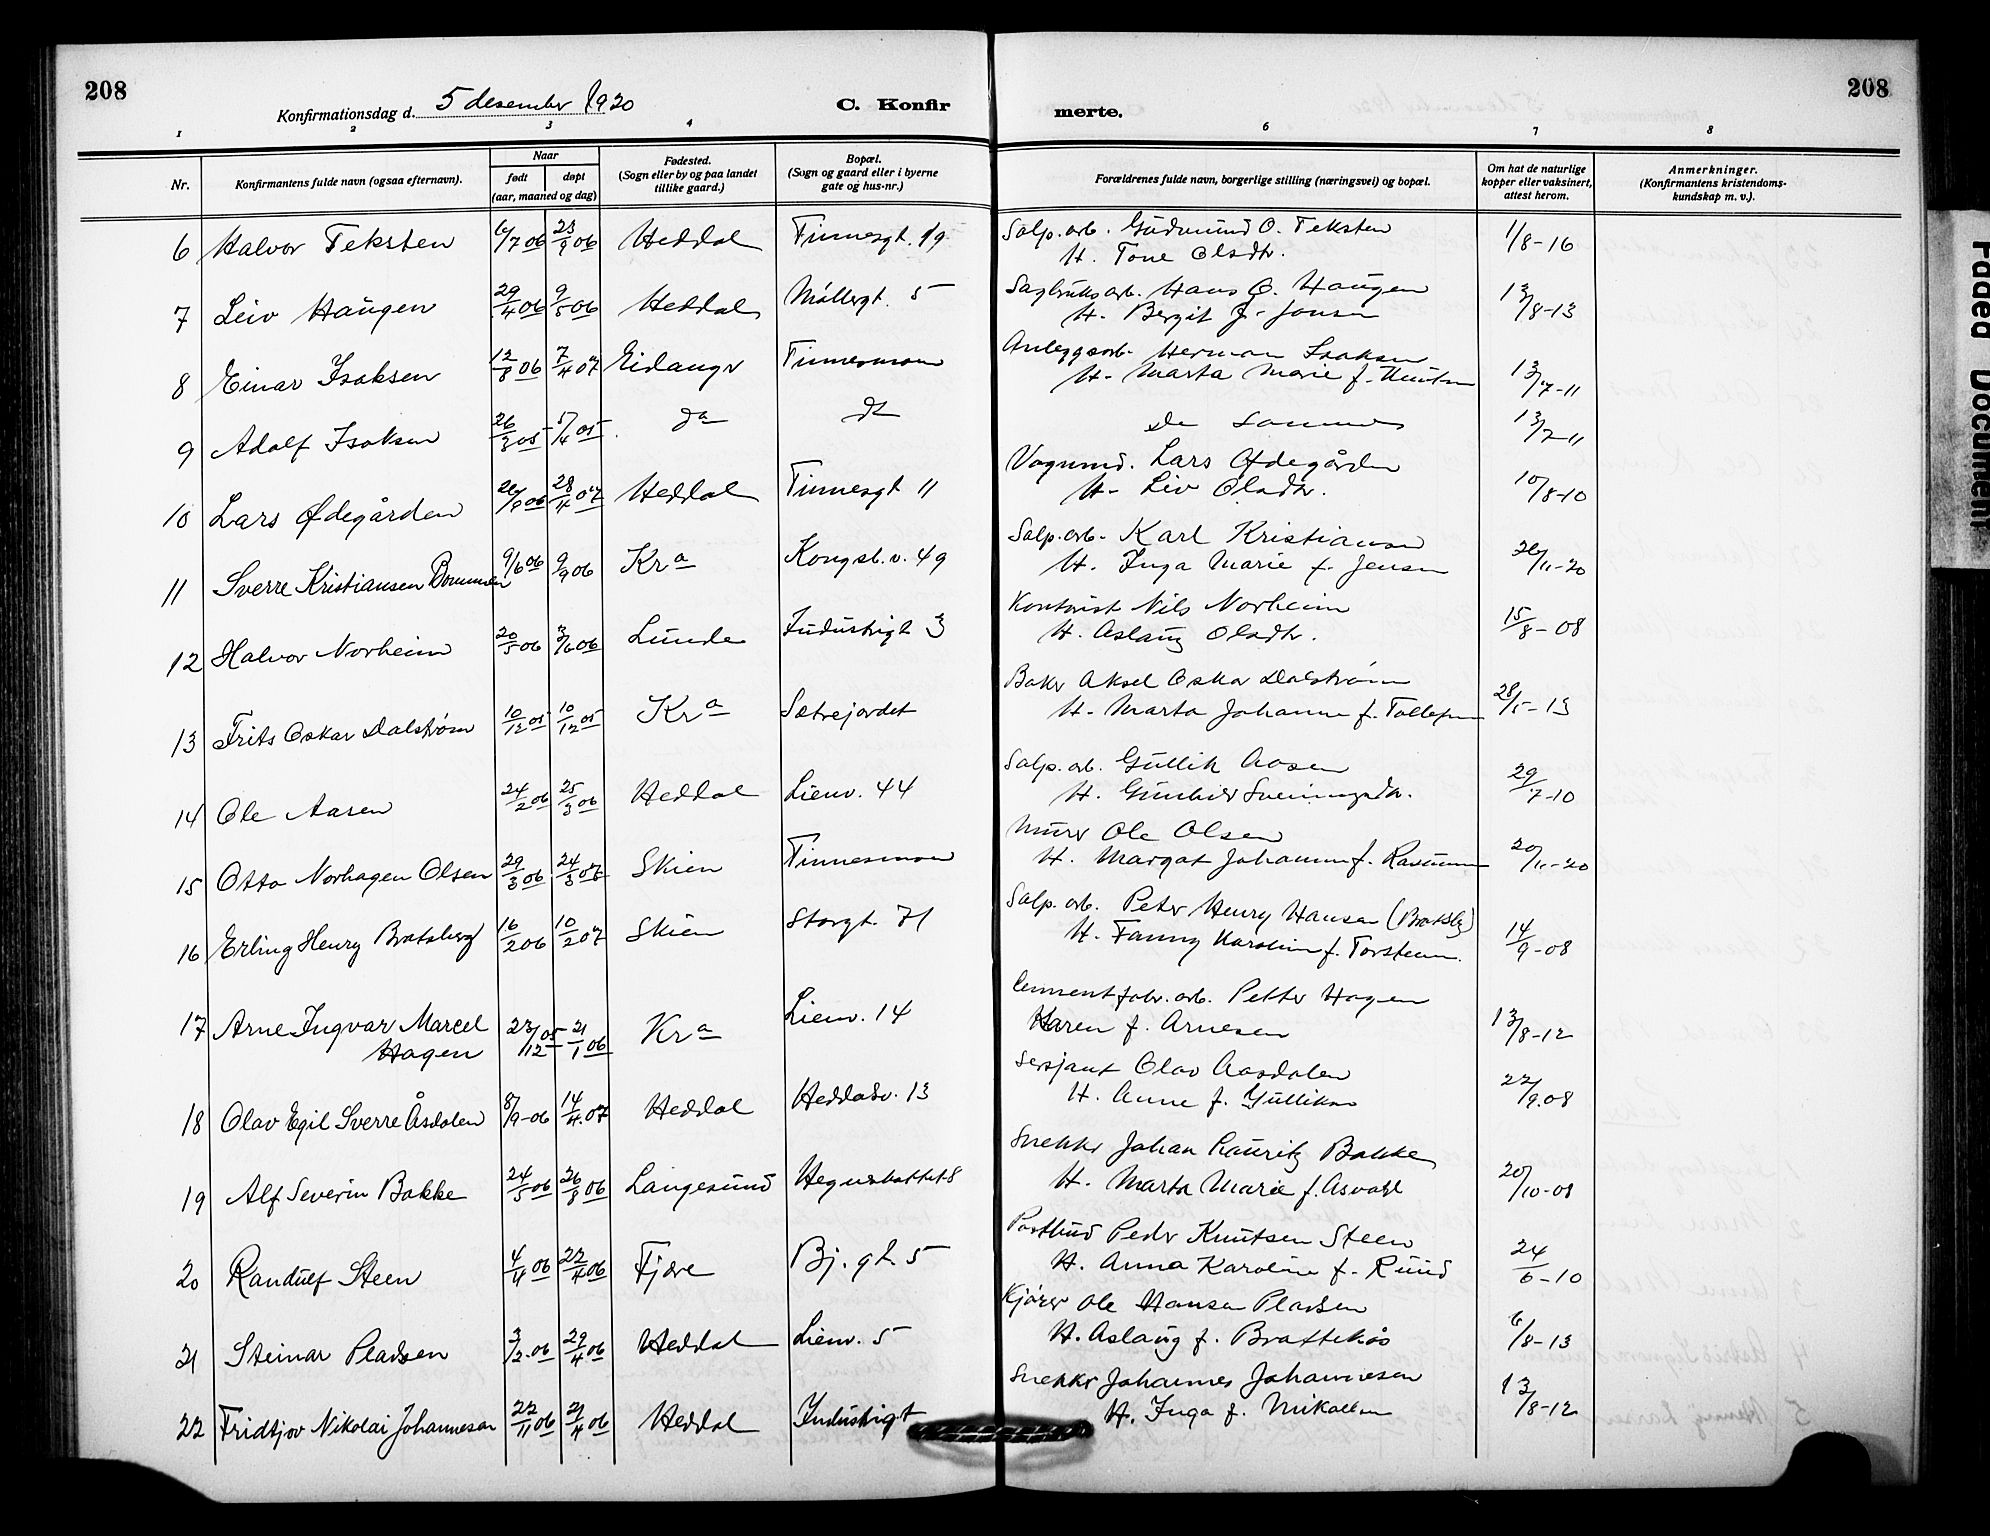 208
Konfirmationsdag d. 5 desember 1920
C. Konfir
merte.
208
1 2 3 4 6 7 8
Nr.
Konfirmantens fulde navn (ogsaa efternavn).
Naar
født
døpt
(aar, maaned og dag)
Fødested.
(Sogn eller by og paa landet
tillike gaard.)
Bopæl.
(Sogn og gaard eller i byerne
gate og hus-nr.)
Forældrenes fulde navn, borgerlige stilling (næringsvei) og bopæl.
Om hat de naturlige
kopper eller vaksinert,
attest herom.
Anmerkninger.
(Konfirmantens kristendoms-
kundskap m. v.).
6 Halvor Teksten 6/7 06 23/9 06 Heddal Tinnesgt. 19 Salp. arb. Gudmund O. Teksten 1/8-16
H. Tone Olsdtr.
7 Leiv Haugen 29/4 06 9/5 06 Heddal Møllergt. 5 Sagbruksarb. Hans O. Haugen 13/8-13
H. Bergit f. Jonsen
8 Einar Isaksen 12/8 06 7/4 07 Eidangr Tinnesmoen Anleggsarb. Herman Isaksen 13/7-11
H. Marta Marie f. Knutsen
9 Adolf Isaksen 26/3 05 5/4 05 do do De samme 13/7-11
10 Lars Ødegården 26/9 06 28/4 07 Heddal Tinnesgt 11 Vognmd. Lars Ødegården 10/8-10
H. Liv Olsdtr.
11 Sverre Kristiansen Bommen 9/6 06 9/9 06 Kra Kongsb.v. 49 Salp. arb. Karl Kristiansen 26/11-20
H. Inga Marie f. Jensen
12 Halvor Norheim 20/5 06 3/6 06 Lunde Industrigt 3 Kontorist Nils Norheim 15/8-08
H. Aslaug Olsdtr.
13 Frits Oskar Dalstrøm 10/12 05 10/12 05 Kra Sætrejordet Baker Aksel Oskar Dalstrøm 28/5-13
H. Marta Johanne f. Tollefsen
14 Ole Aasen 24/2 06 25/3 06 Heddal Lienv. 44 Salp. arb. Gullik Aasen 29/7-10
H. Gunhild Sveinungsdtr.
15 Otto Norhagen Olsen 29/3 06 24/3 07 Skien Tinnesmoen Murer Ole Olsen 20/11-20
H. Margat Johanne f. Rasmussen
16 Erling Henry Bratsberg 16/2 06 10/2 07 Skien Storgt. 71 Salp. arb. Peter Henry Hansen (Bratsbg) 14/9-08
H. Fanny Karoline f. Torstensen.
17 Arne Ingvar Marcel 23/12 05 21/1 06 Kra Lienv. 14 Cementfabr. arb. Petter Hagen 13/8-12
Hagen Karen f. Arnesen
18 Olav Egil Sverre Åsdalen 8/9-06 14/4 07 Heddal Heddalsv. 13 Sersjant Olav Aasdalen 22/9.08
H. Anne f. Gulliksen
19 Alf Severin Bakke 24/5 06 26/8 06 Langesund 8 Snekker Johan Lauritz Bakke 20/10-08
H. Marta Marie f. Asvald
20 Randulf Steen 4/4 06 22/4 06 Fjære Bj. gt. 5 Postbud Peder Knutsen Steen 24/6-10
H. Anna Karoline f. Ruud
21 Steinar Pladsen 3/2.06 29/4 06 Heddal Lienv. 5 Kjører Ole Hansen Pladsen 6/8-13
H. Aslaug f. Brattekås
22 Fridtjov Nikolai Johannesen 22/11 06 21/4 06 Heddal Industrigt Snekker Johannes Johannesen 13/8-12
H. Inga f. Mikaelsen
Faded Document